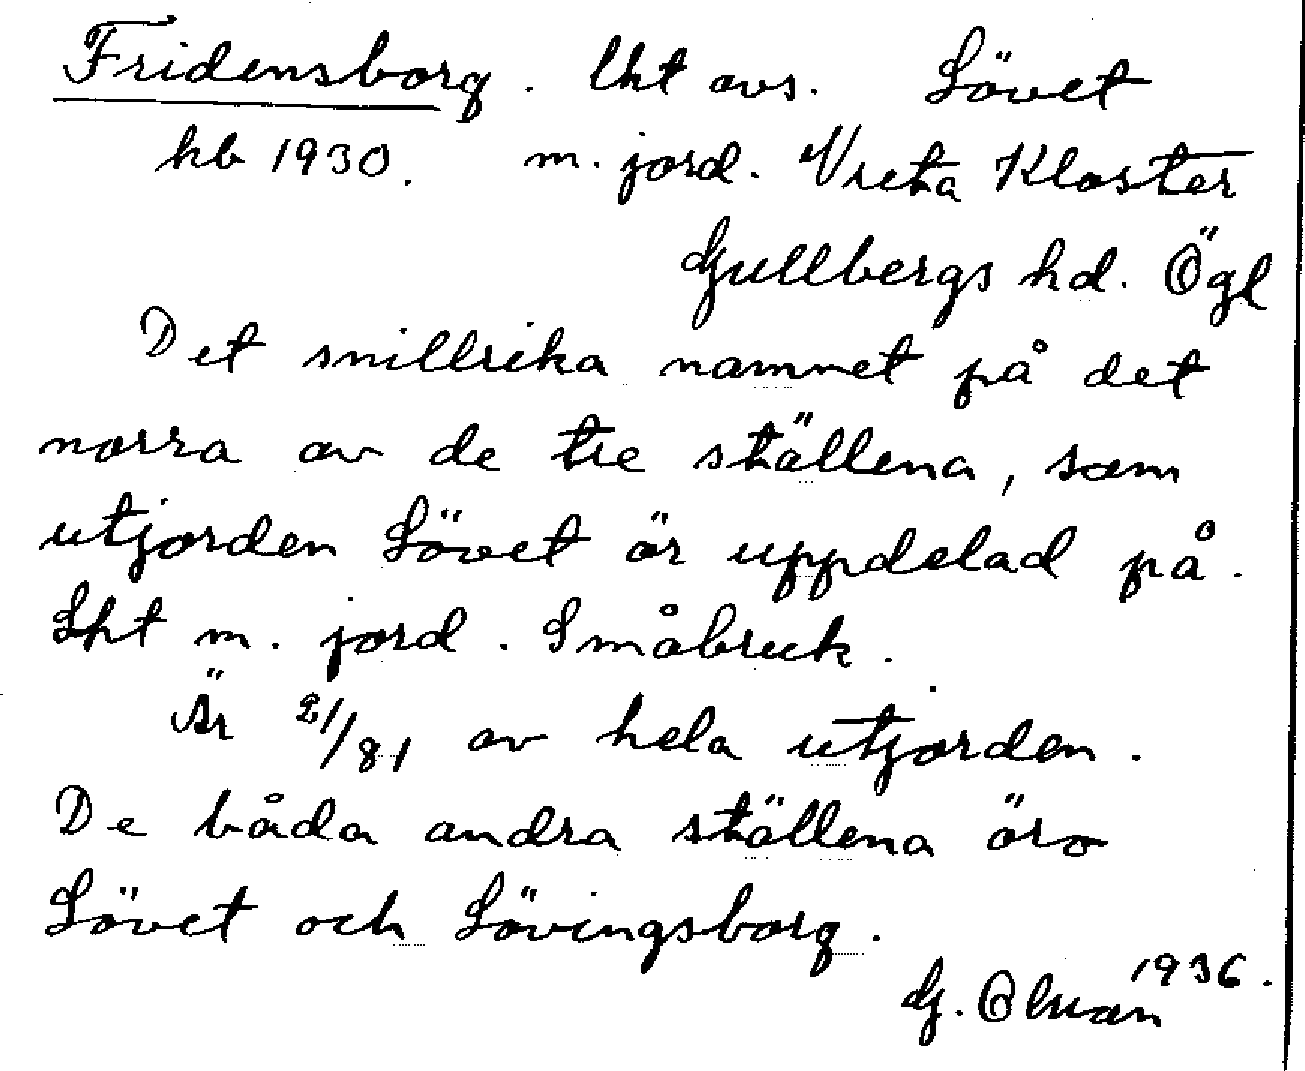 Fridensborg. lht avs. Lövet
hb 1930. m. jord. Vreta Kloster
Gullbergs hd. Ögl
Det snillrika namnet på det
norra av de tre ställena, som
utjorden Lövet är uppdelad på.
Lht m. jord. Småbruk.
Är 21/81 av hela utjorden.
De båda andra ställena äro
Lövet och Lövingsborg.
1936.
G.